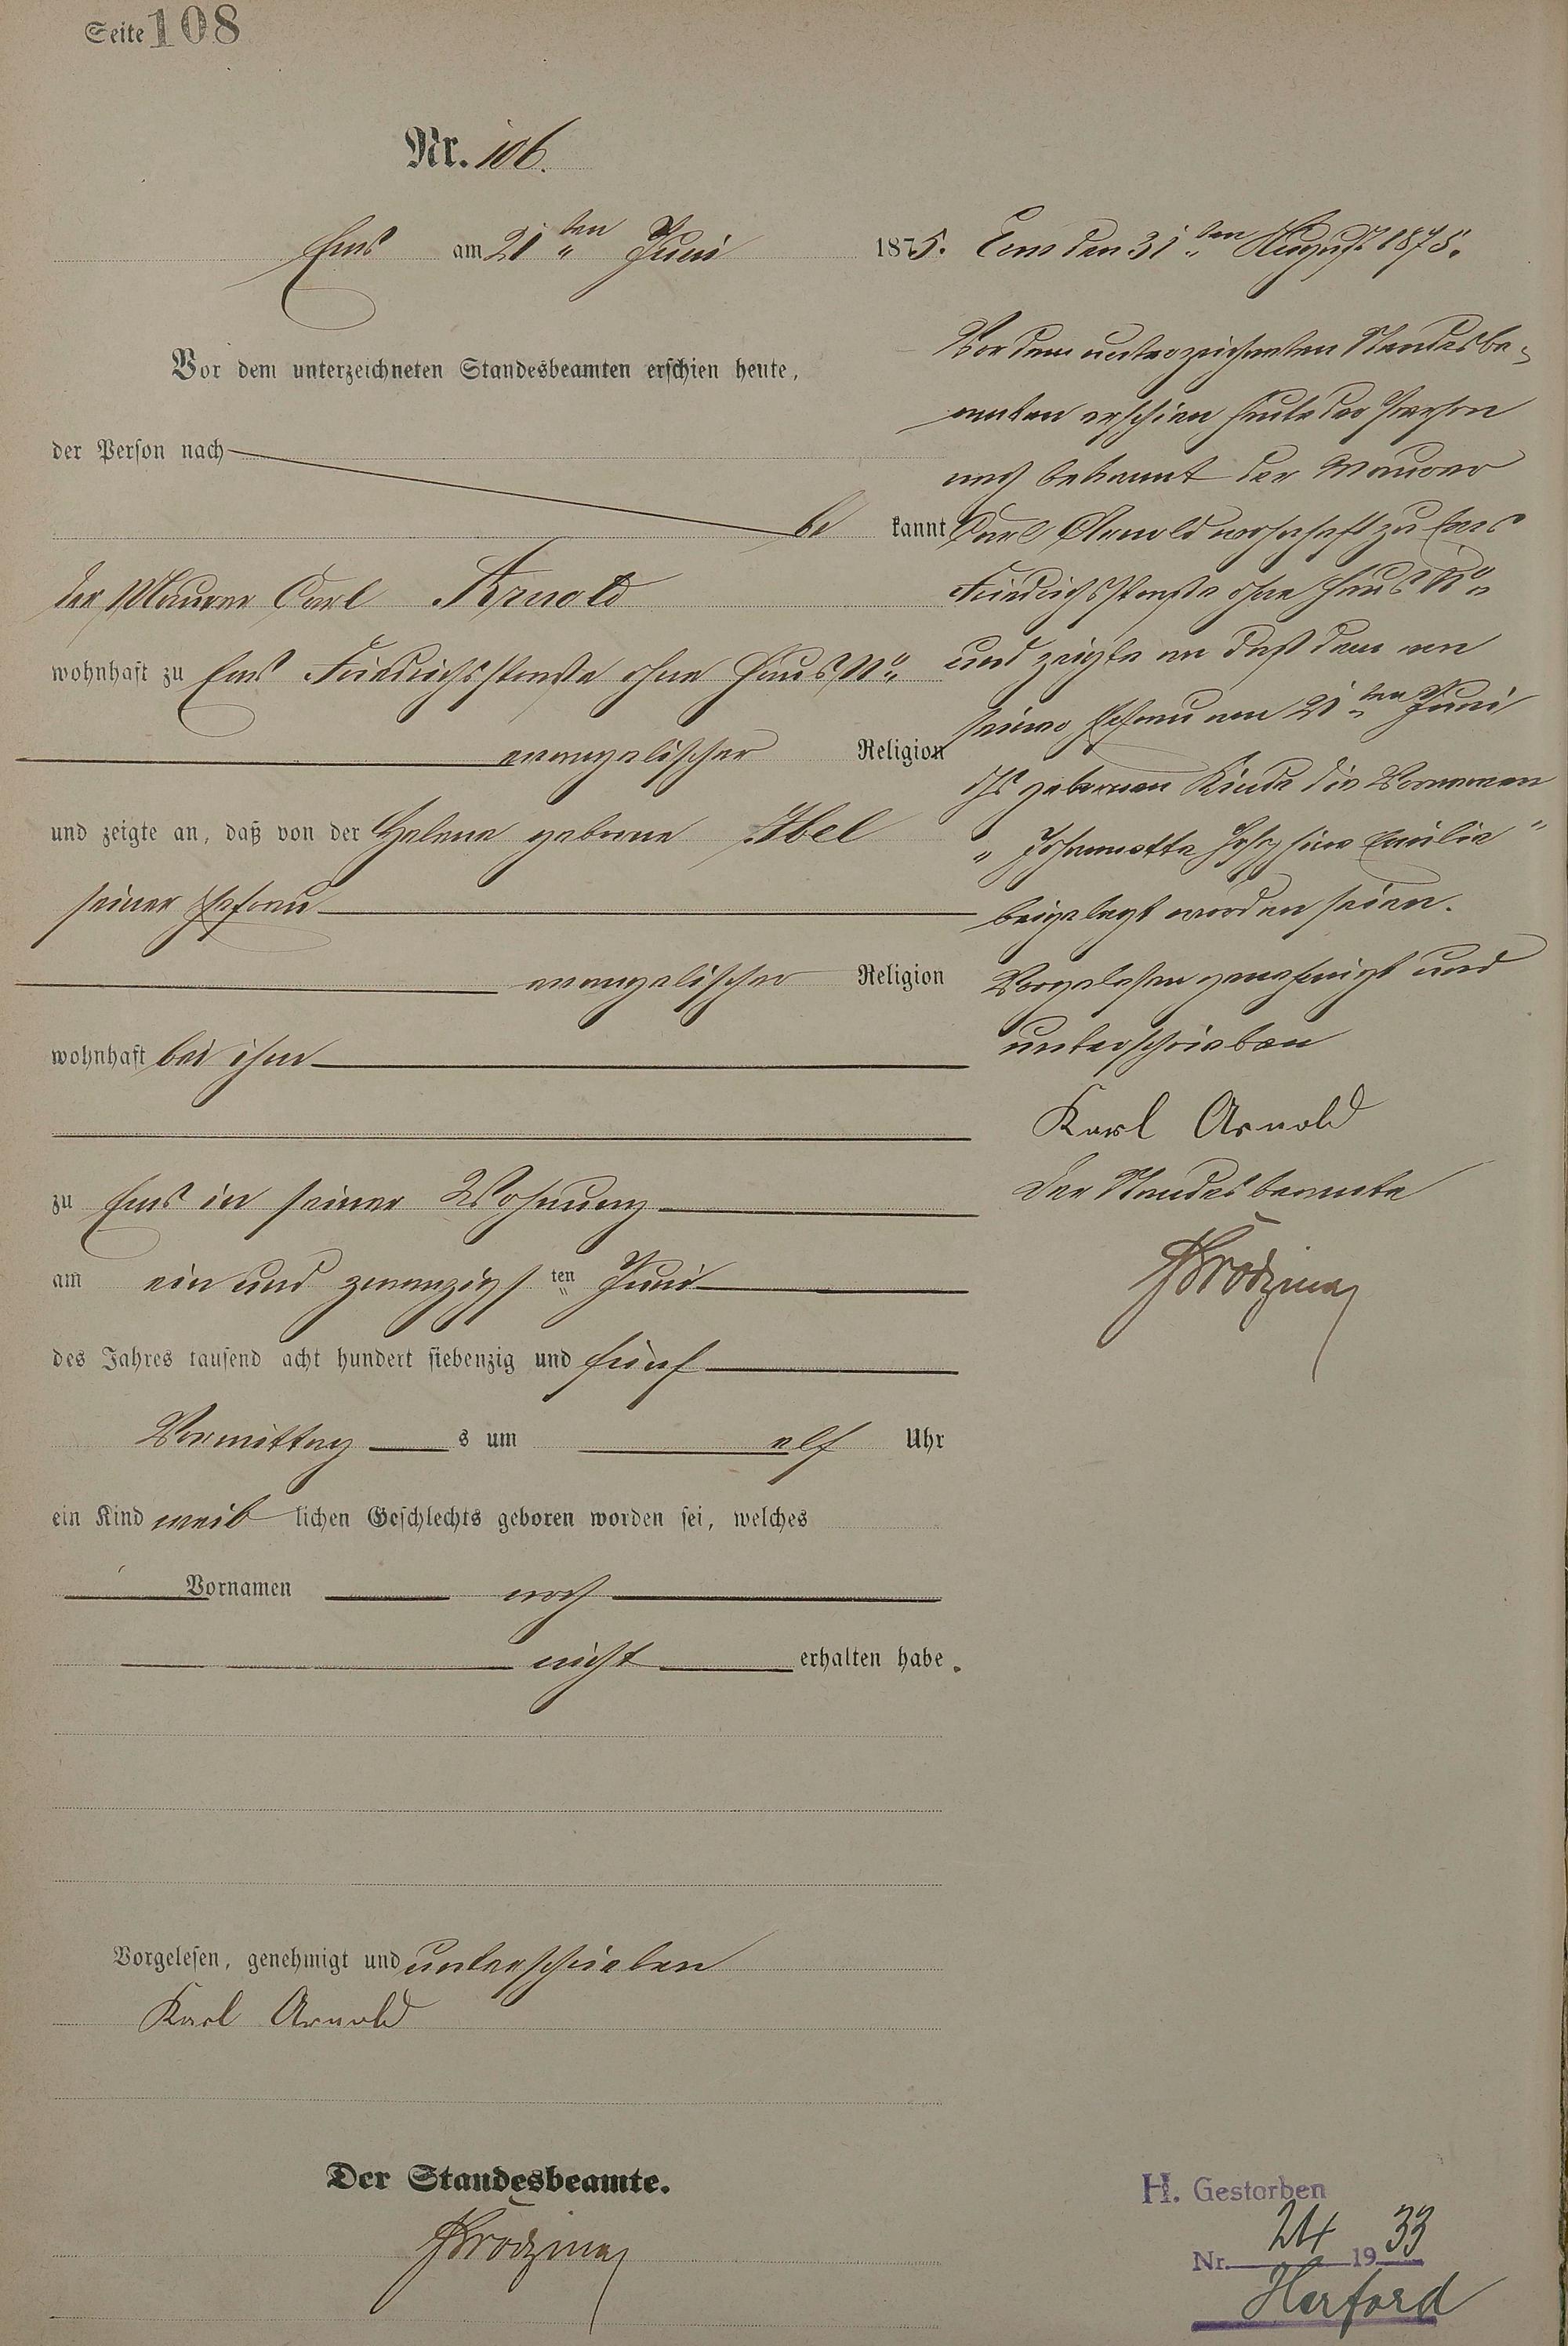 Seite 108
Nr. 106.
Ems am 21ten Juni 1875.
Vor dem unterzeichneten Standesbeamten erschien heute,
der Person nach
be kannt
der Maurer Carl Arnold
wohnhaft zu Ems Friedrichsstraße ohne Haus No
evangelischer Religion
und zeigte an, daß von der Helena geborne Abel
seiner Ehefrau
evangelischer Religion
wohnhaft bei ihm
zu Ems in seiner Wohnung
am ein und zwanzigsten Juni
des Jahres tausend acht hundert siebenzig und fünf
Vormittag s um elf Uhr
ein Kind weib lichen Geschlechts geboren worden sei, welches
Vornamen noch
nicht erhalten habe.
Vorgelesen, genehmigt und unterschrieben
Karl Arnold
Der Standesbeamte.
Ems den 31ten August 1875.
Vor dem unterzeichneten Standesbe-
amten erschien heute der Person
nach bekannt der Maurer
Carl Arnold wohnhaft zu Ems
Friedrichsstraße ohne Haus No
und zeigte an daß dem von
seiner Ehefrau am 21ten Juni
geborenen Kinde die Vornamen
"Johannetta Josephine Emilie"
beigelegt worden seien.
Vorgelesen genehmigt und
unterschrieben
Karl Arnold
Der Standesbeamte
H. Gestorben
Nr. 24 1933
Herford